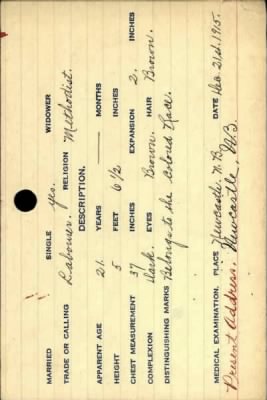 MARRIED SINGLE yes. WIDOWER
TRADE OR CALLING Labourer. RELIGION Methodist.
DESCRIPTION.
APPARENT AGE 21. YEARS — MONTHS
HEIGHT 5 FEET 6 1/2 INCHES
CHEST MEASUREMENT 37 INCHES EXPANSION 2. INCHES
COMPLEXION Dark. EYES Brown. HAIR Brown.
DISTINGUISHING MARKS Belongs to the Colored Race.
MEDICAL EXAMINATION. PLACE Newcastle. N.B. DATE Dec. 21st. 1915.
Present Address. Newcastle, N.B.